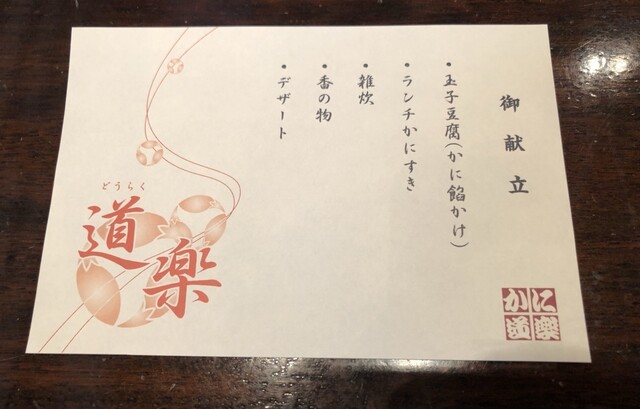 御献立
• 玉子豆腐(かに餡かけ)
• ランチかにすき
• 雑炊
• 香の物
• デザート
どうらく
道楽
かに
道楽